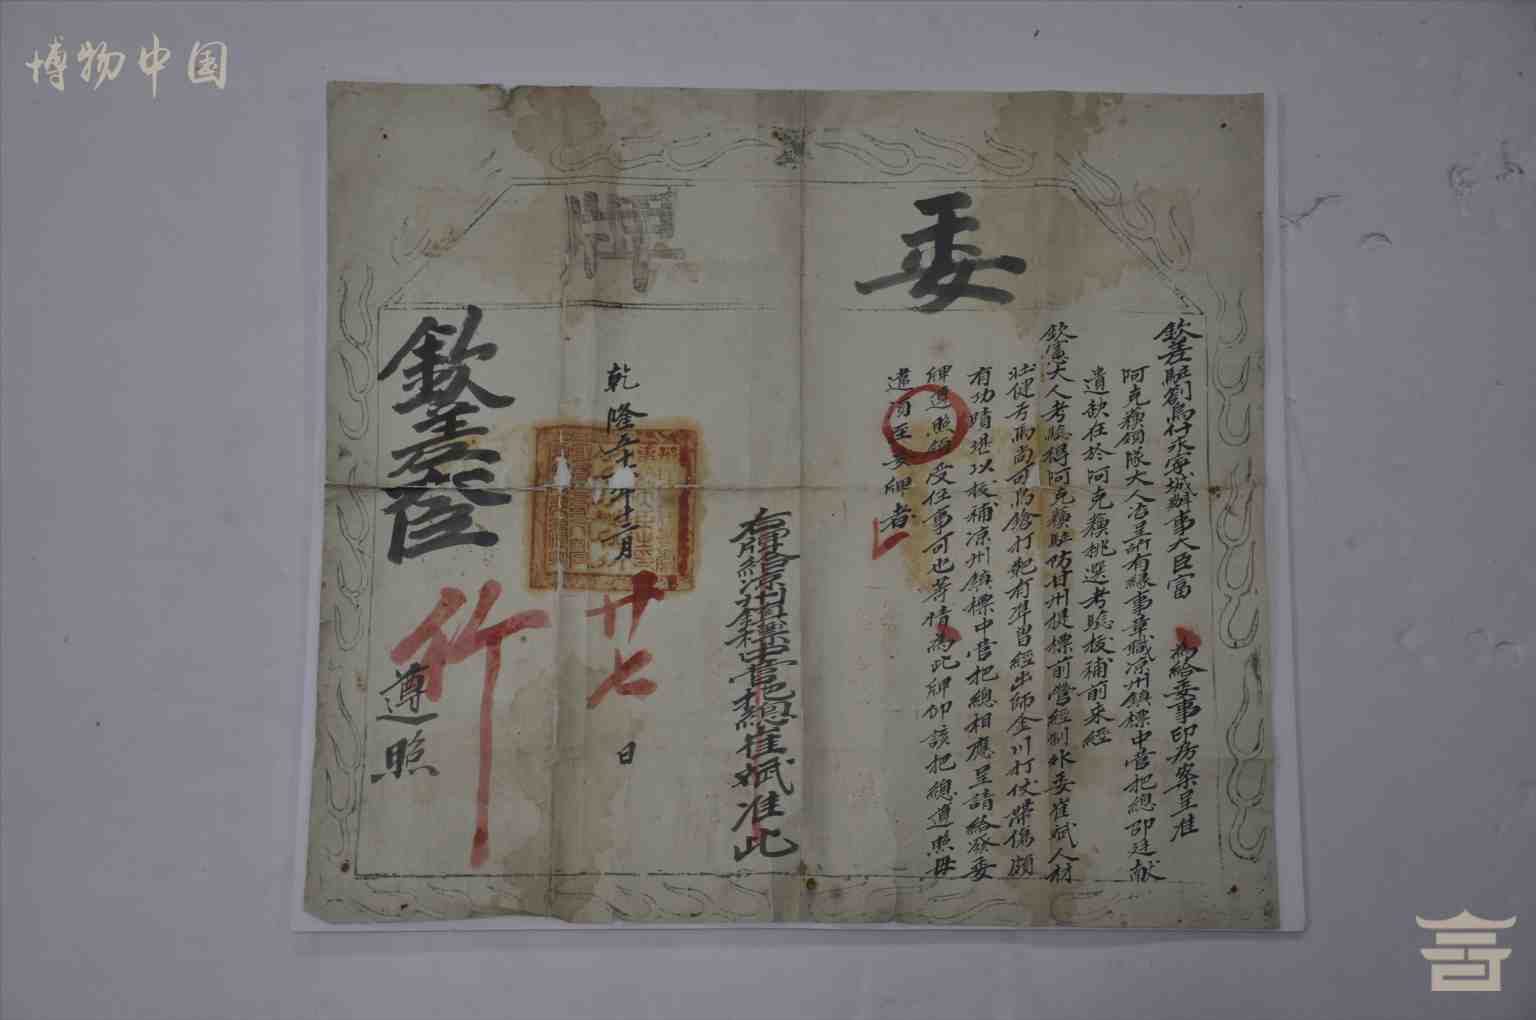 博物中国
委牌
欽差駐劄烏什永寧城辦事大臣富 為給委事印房案呈准
阿克蘇領隊大人咨呈所有緣事革職凉州鎮標中營把總邵廷献
遺缺在於阿克蘇挑選考驗拔補前来經
欽憲大人考驗得阿克蘇駐防甘州提標前營經制外委崔斌人材
壮健弓馬尚可鳥鎗打靶有準曾經出師金川打仗帶傷頗
有功蹟堪以拔補凉州鎮標中營把總相應呈請給發委
牌遵照領受任事可也等情為此牌仰該把總遵照毋
違須至委牌者
右牌給凉州鎮標中營把總崔斌准此
乾隆五十年十二月廿七日
欽差大臣 行
遵照